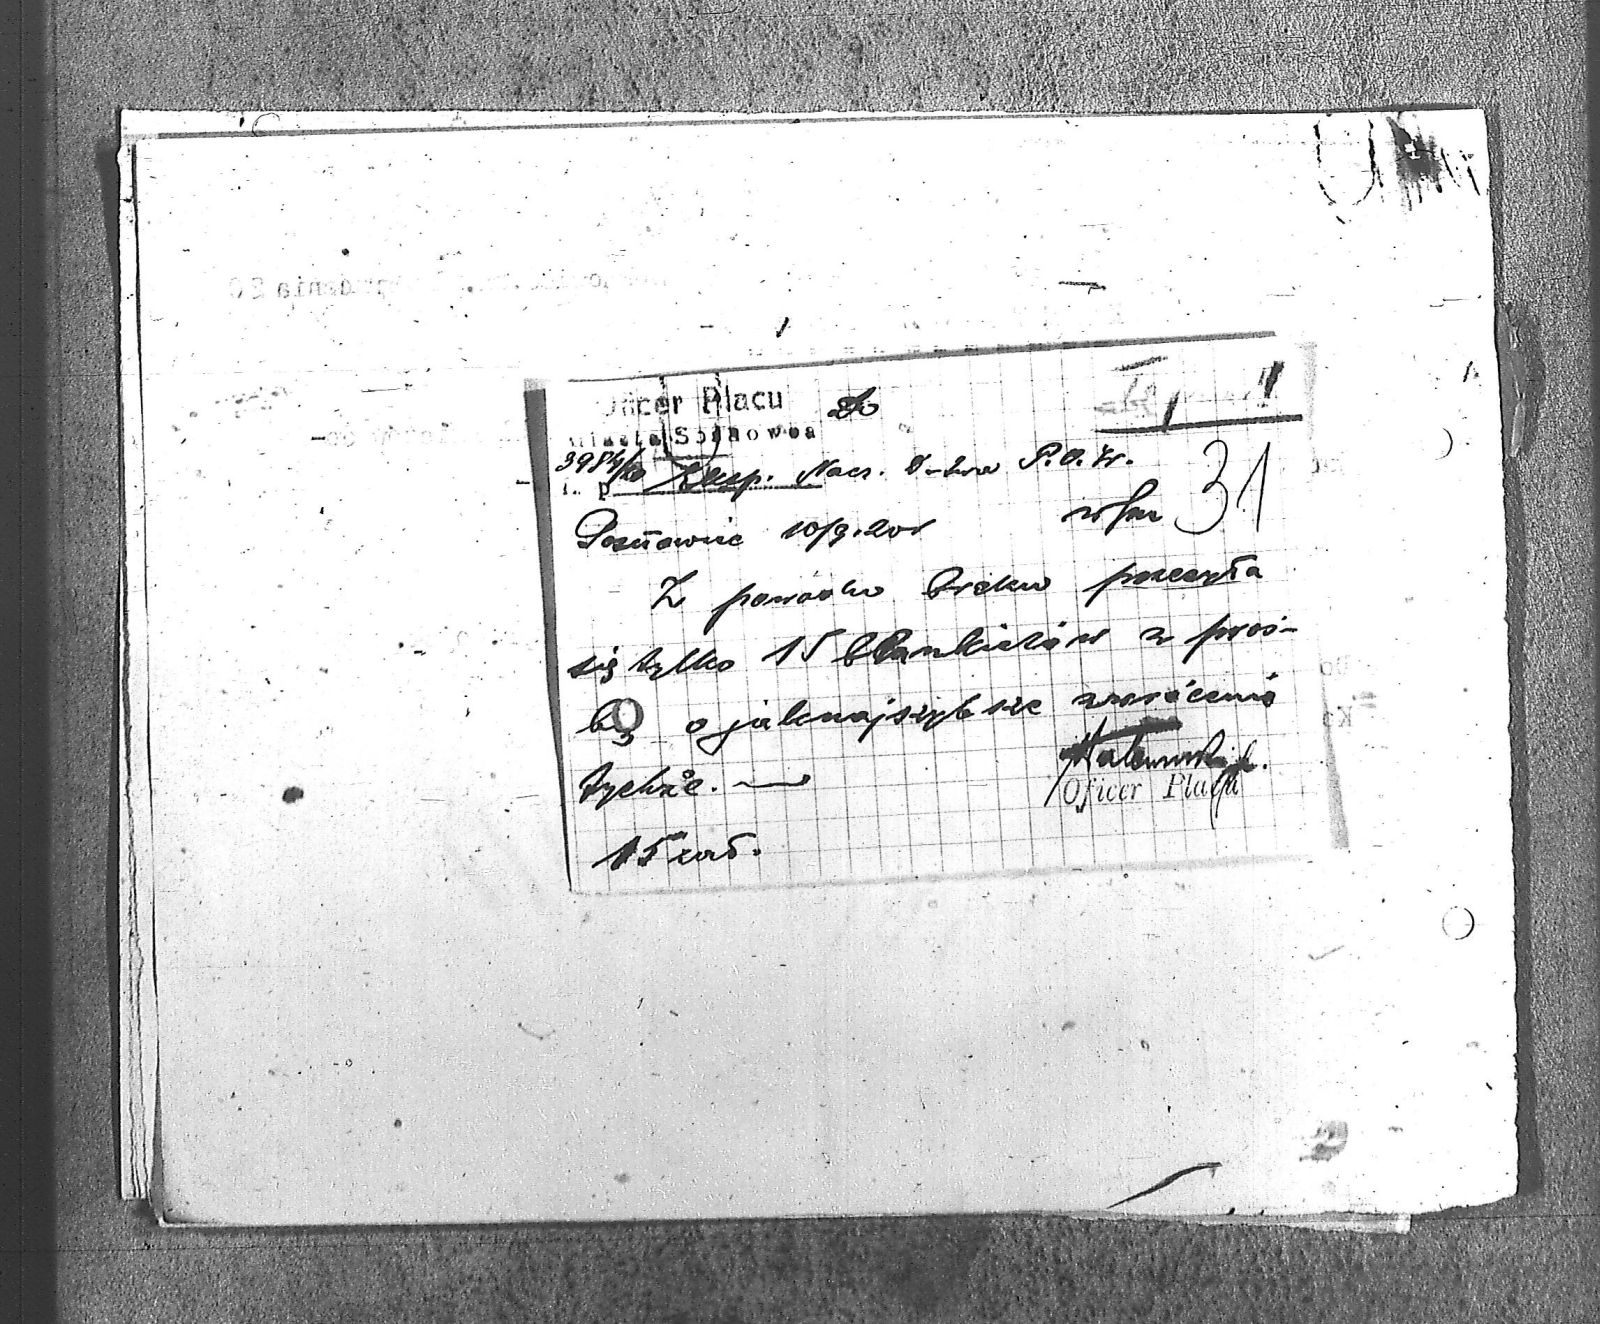 Oficer Placu
Miasta Sosnowca
Do
3984/20
Eksp. Nacz. D-twa P.O.W.
L. p.
Sosnowiec 10/9.20r
w/m
31
Z powodu braku przesyła
się tylko 15 blankietów z proś-
bą o jaknajszybsze zwrócenie
tychże.
Oficer Placu
15 zał.